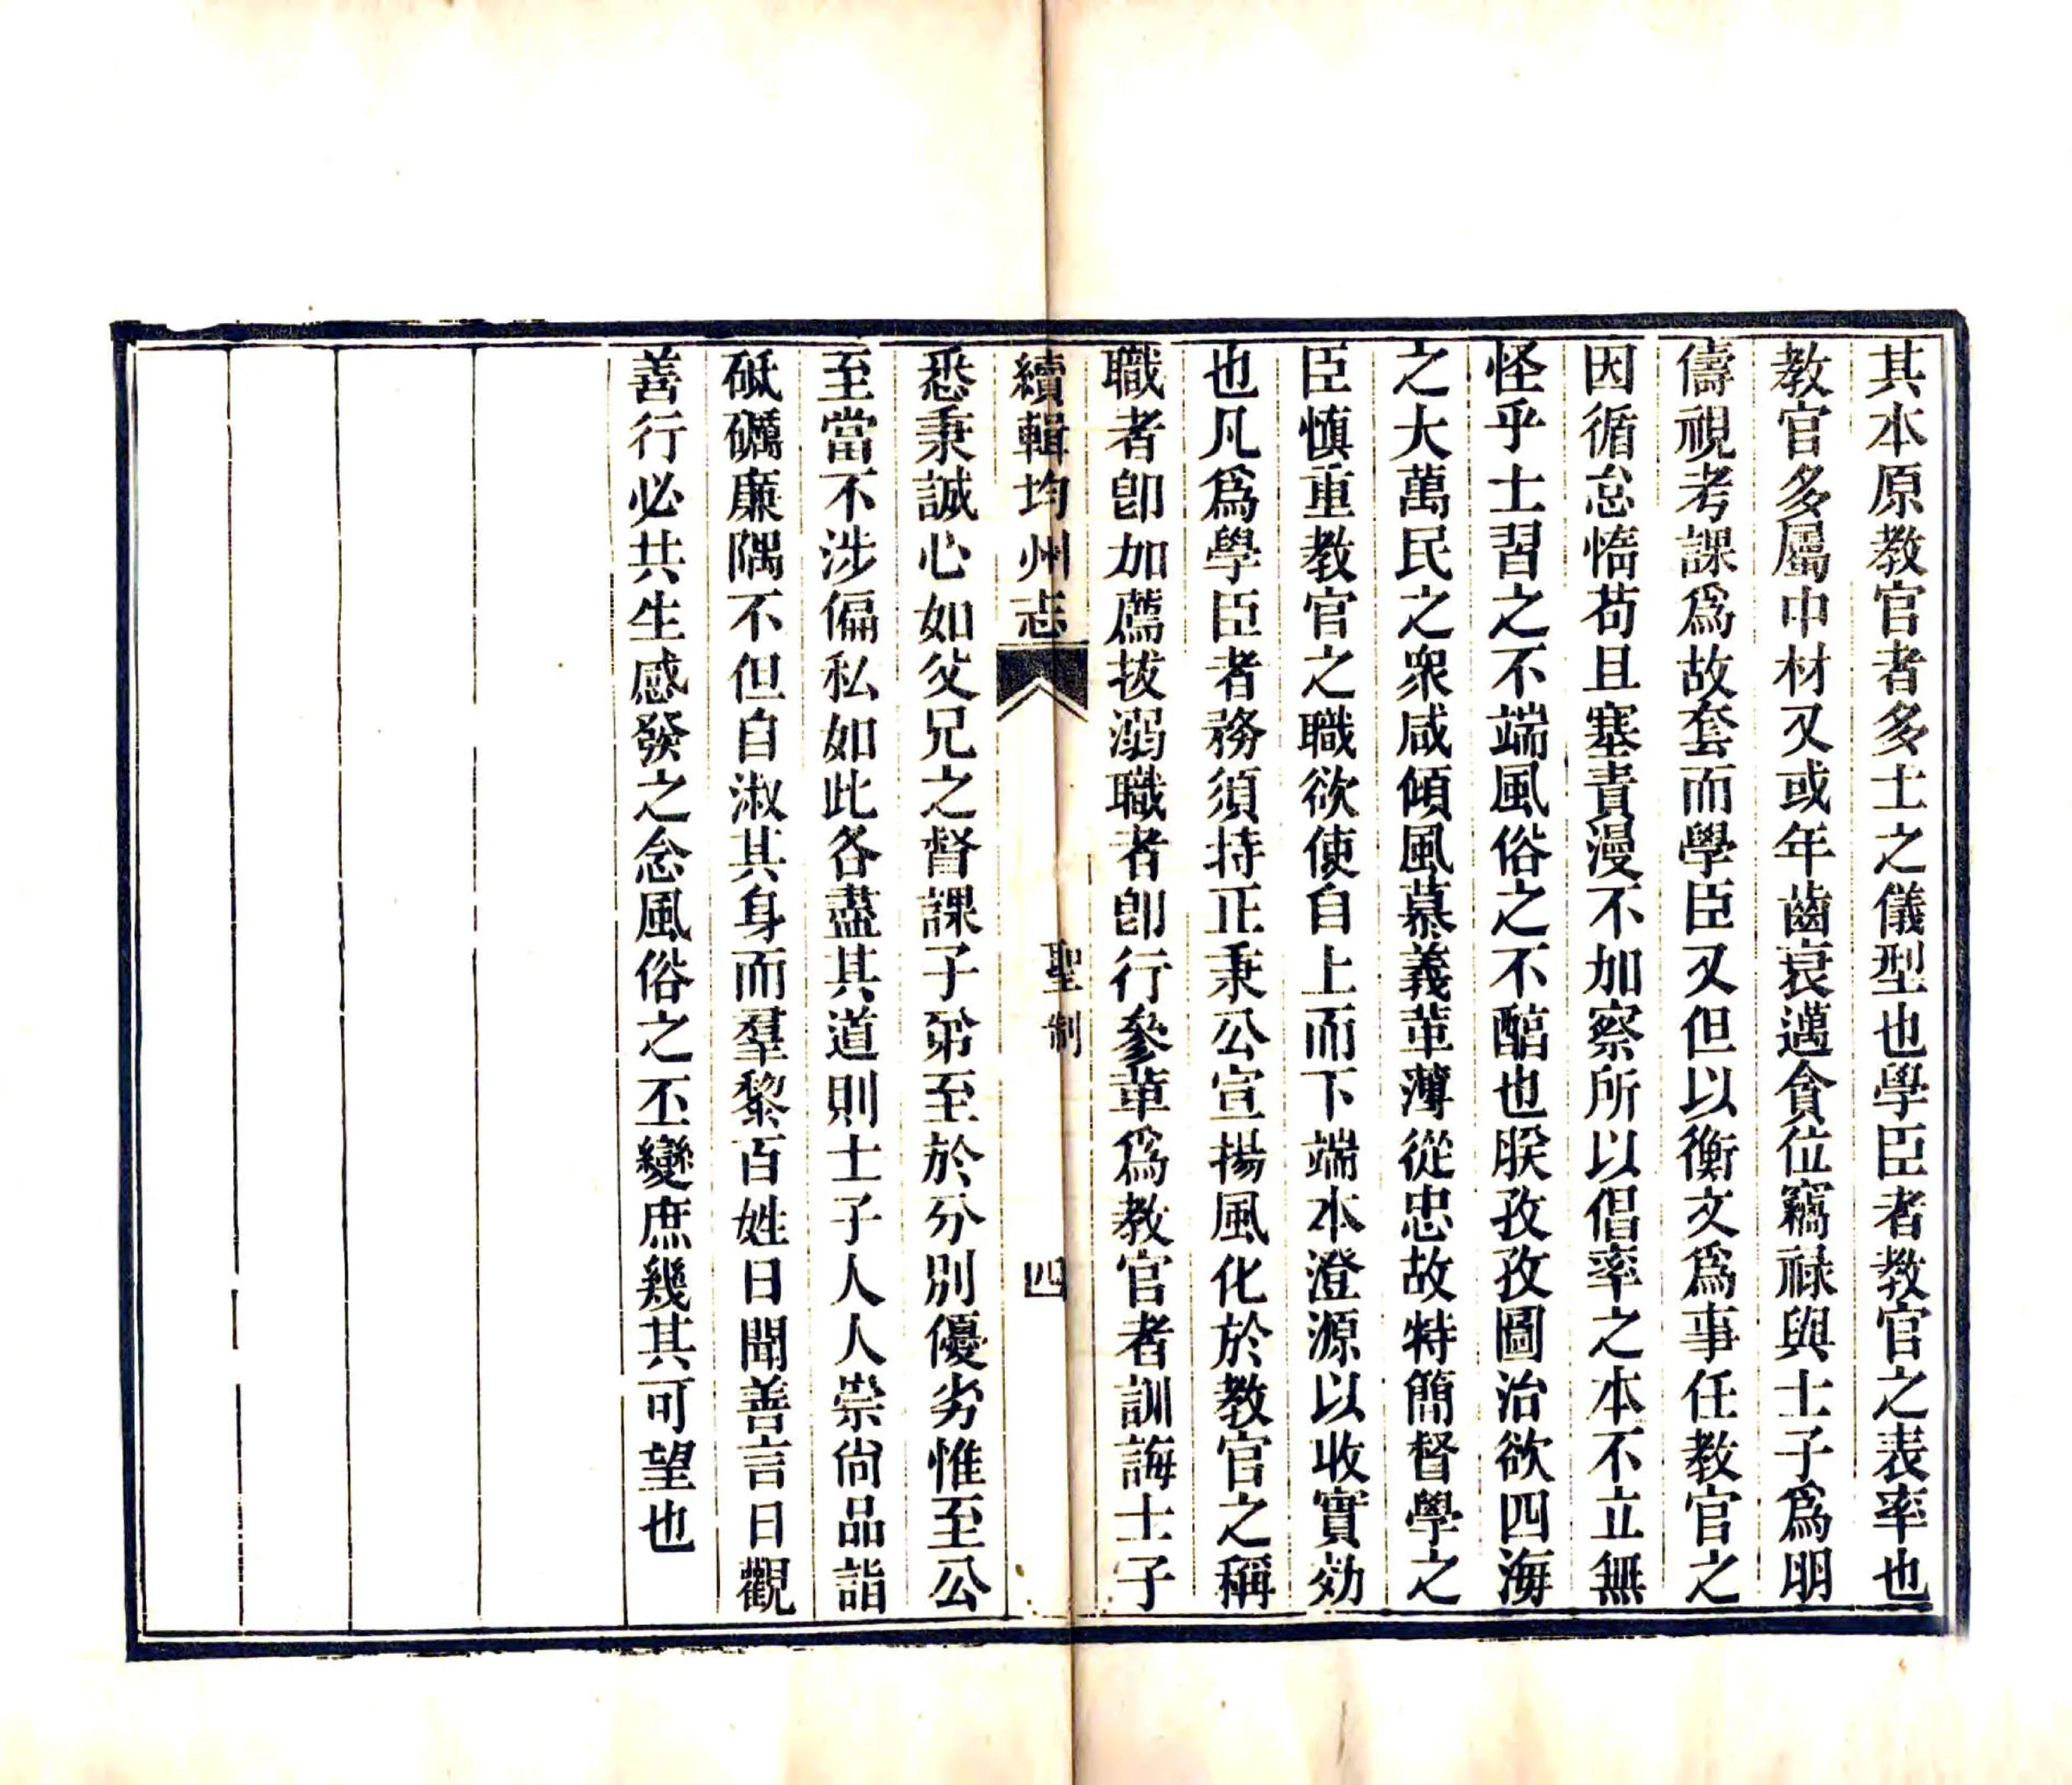 其本原教官者多士之儀型也學臣者教官之表率也
教官多屬中材又或年齒衰邁貪位竊祿與士子爲朋
儔視考課爲故套而學臣又但以衡文爲事任教官之
因循怠惰苟且塞責漫不加察所以倡率之本不立無
怪乎士習之不端風俗之不醕也朕孜孜圖治欲四海
之大萬民之衆咸傾風慕義革薄從忠故特簡督學之
臣慎重教官之職欲使自上而下端本澄源以收實効
也凡爲學臣者務須持正秉公宣揚風化於教官之稱
職者卽加薦拔溺職者卽行參革爲教官者訓誨士子
續輯均州志 聖制 四
悉秉誠心如父兄之督課子弟至於分別優劣惟至公
至當不涉偏私如此各盡其道則士子人人崇尚品詣
砥礪廉隅不但自淑其身而羣黎百姓日聞善言日觀
善行必共生感發之念風俗之丕變庶幾其可望也